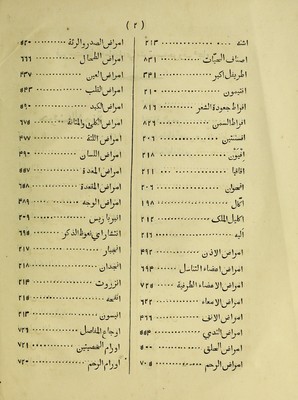 ( ٢ )
اشنه ٢١٣
اصناف الحيّات ٨٣١
اطريفل اكبر ٣٣١
افتيمون ٢١٠
افراط جعودة الشعر ٨١٦
افراط السمن ٨٢٦
افسنتين ٢٠٦
افيون ٢١٨
اقاقيا ٢١١
اقحوان ٢٠٦
اكّال ١٩٨
اكليل الملك ٢١٢
اليه ٢١٦
امراض الاذن ٤٩٢
امراض اعضاء التناسل ٦٩٤
امراض الاعضاء الطرفية ٧٢٥
امراض الامعاء ٦٢٢
امراض الانف ٤٦٦
امراض الثدي ٥٥٤
امراض الحلق ٥٠٠
امراض الرحم ٧٠٥
امراض الصدر والرئة ٥٢٠
امراض الطحال ٦٦٦
امراض العين ٤٣٧
امراض القلب ٥٤٣
امراض الكبد ٥٩٠
امراض الكلى والمثانة ٦٧٥
امراض اللثة ٤٧٧
امراض اللسان ٤٩٠
امراض المعدة ٥٥٧
امراض المقعدة ٦٥٨
امراض الوجه ٤٨٩
انبرباريس ٢٠٩
انتشار اي نعوظ الذكر ٦٩٥
انجبار ٢١٧
انجدان ٢١٨
انزروت ٢١٤
انفحه ٢١٥
انيسون ٢١٣
اوجاع المفاصل ٧٢٦
اورام الخصيتين ٧٢١
اورام الرحم ٧٢٠